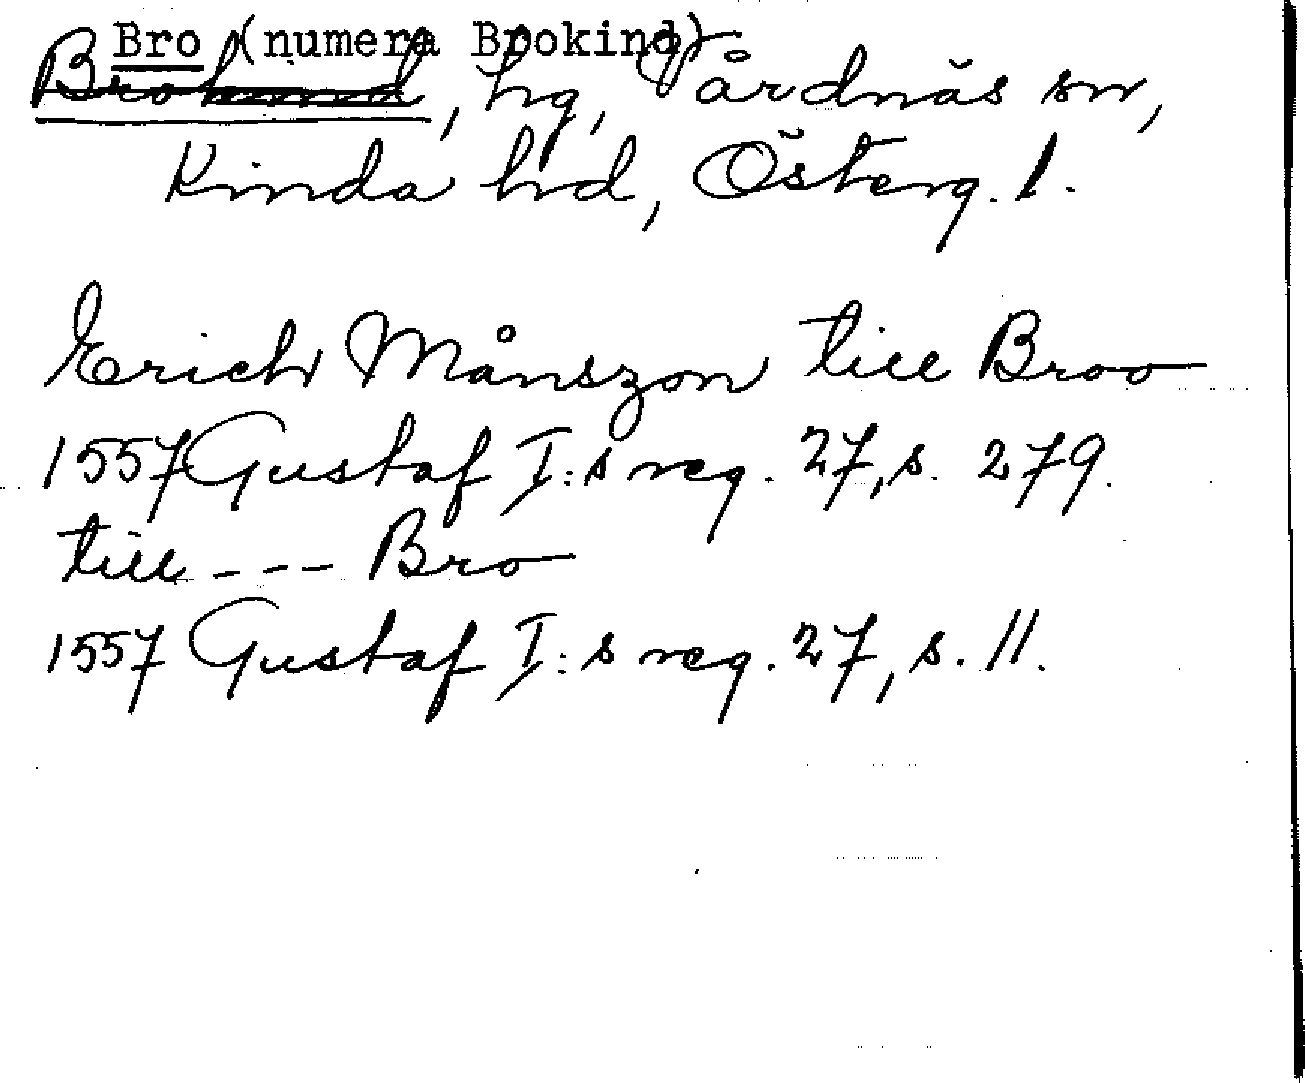 Bro (numera Brokind)
Brokind, hg, Vårdnäs sn,
Kinda hd, Österg. l.
Erich Månszon till Broo
1557 Gustaf I:s reg. 27, s. 279.
till --- Bro
1557 Gustaf I:s reg. 27, s. 11.